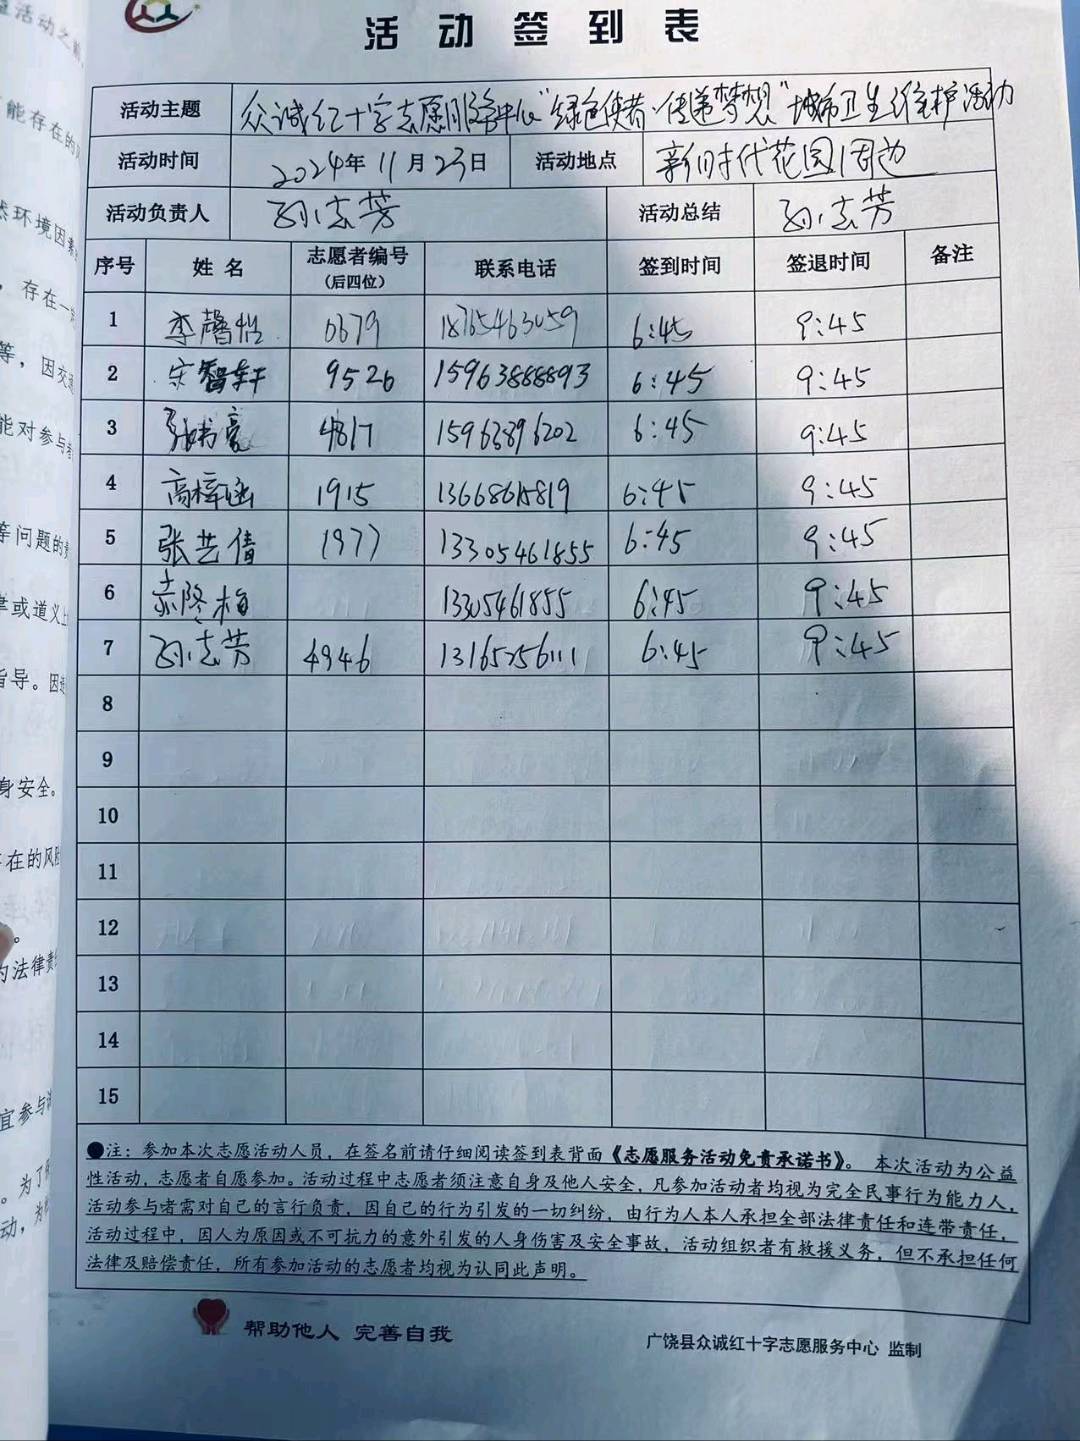 益活动之前
能存在的风
然环境因素
，存在一定
等，因交通
能对参与者
等问题的责
律或道义上
指导。因违
身安全。
存在的风险
。
为法律责任
宜参与
。为了
动，为
活动签到表
活动主题 众诚红十字志愿服务中心"绿色使者·传递梦想"城市卫生维护活动
活动时间 2024年11月23日 活动地点 新时代花园周边
活动负责人 孙志芳 活动总结 孙志芳
序号 姓名 志愿者编号（后四位） 联系电话 签到时间 签退时间 备注
1 李馨怡 0679 18765463059 6:45 9:45
2 宋智轩 9526 15963888893 6:45 9:45
3 张书豪 4817 15963896202 6:45 9:45
4 高梓涵 1915 13668615819 6:45 9:45
5 张艺倩 1977 13305461855 6:45 9:45
6 13305461855 6:45 9:45
7 孙志芳 4946 13165256111 6:45 9:45
8
9
10
11
12
13
14
15
●注：参加本次志愿活动人员，在签名前请仔细阅读签到表背面《志愿服务活动免责承诺书》。本次活动为公益
性活动，志愿者自愿参加。活动过程中志愿者须注意自身及他人安全，凡参加活动者均视为完全民事行为能力人，
活动参与者需对自己的言行负责，因自己的行为引发的一切纠纷，由行为人本人承担全部法律责任和连带责任，
活动过程中，因人为原因或不可抗力的意外引发的人身伤害及安全事故，活动组织者有救援义务，但不承担任何
法律及赔偿责任，所有参加活动的志愿者均视为认同此声明。
帮助他人 完善自我
广饶县众诚红十字志愿服务中心 监制